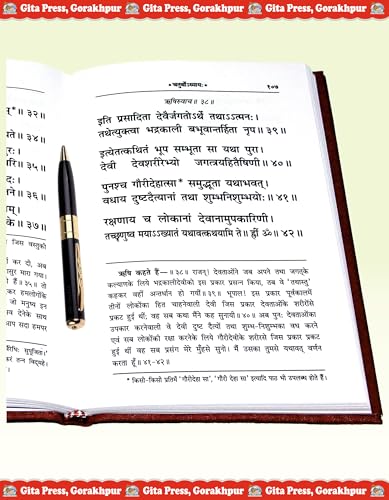 Gita Press, Gorakhpur Gita Press, Gorakhpur Gita Press, Gorakhpur
* चतुर्थोऽध्यायः * १०७
ऋषिरुवाच ॥ ३८ ॥
इति प्रसादिता देवैर्जगतोऽर्थे तथाऽऽत्मनः ।
तथेत्युक्त्वा भद्रकाली बभूवान्तर्हिता नृप ॥ ३९ ॥
इत्येतत्कथितं भूप सम्भूता सा यथा पुरा ।
देवी देवशरीरेभ्यो जगत्त्रयहितैषिणी ॥ ४० ॥
पुनश्च गौरीदेहात्सा* समुद्भूता यथाभवत् ।
वधाय दुष्टदैत्यानां तथा शुम्भनिशुम्भयोः ॥ ४१ ॥
रक्षणाय च लोकानां देवानामुपकारिणी ।
तच्छृणुष्व मयाऽऽख्यातं यथावत्कथयामि ते ॥ ह्रीं ॐ ॥ ४२ ॥
ऋषि कहते हैं— ॥ ३८ ॥ राजन्! देवताओंने जब अपने तथा जगत्के
कल्याणके लिये भद्रकालीदेवीको इस प्रकार प्रसन्न किया, तब वे 'तथास्तु'
कहकर वहीं अन्तर्धान हो गयीं ॥ ३९ ॥ भूपाल! इस प्रकार पूर्वकालमें
तीनों लोकोंका हित चाहनेवाली देवी जिस प्रकार देवताओंके शरीरोंसे
प्रकट हुई थीं; वह सब कथा मैंने कह सुनायी ॥ ४० ॥ अब पुनः देवताओंका
उपकार करनेवाली वे देवी दुष्ट दैत्यों तथा शुम्भ-निशुम्भका वध करने
एवं सब लोकोंकी रक्षा करनेके लिये गौरीदेवीके शरीरसे जिस प्रकार प्रकट
हुई थीं वह सब प्रसंग मेरे मुँहसे सुनो। मैं उसका तुमसे यथावत् वर्णन
करता हूँ ॥ ४१-४२ ॥
* किसी-किसी प्रतिमें 'गौरीदेहा सा', 'गौरी देहा सा' इत्यादि पाठ भी उपलब्ध होते हैं।
Gita Press, Gorakhpur Gita Press, Gorakhpur Gita Press, Gorakhpur